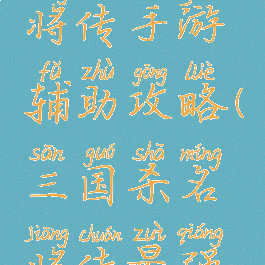 将传手游
fǔ zhù gōng lüè
辅助攻略(
sān guó shā míng
三国杀名
jiàng chuán zuì qiáng
将传最强